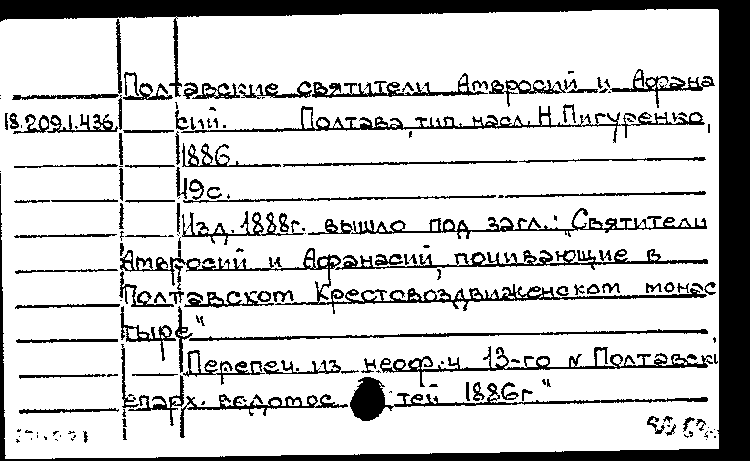 Полтавские святители Амвросий и Афана
18.209.1.436. сий. Полтава, тип. насл. Н. Пигуренко,
1886.
19 с.
Изд. 1888г. вышло под загл.: „Святители
Амвросий и Афанасий, почивающие в
Полтавском Крестовоздвиженском монас
тыре".
Перепеч. из неоф. ч. 13-го N Полтавск
епарх. ведомос тей 1886г."